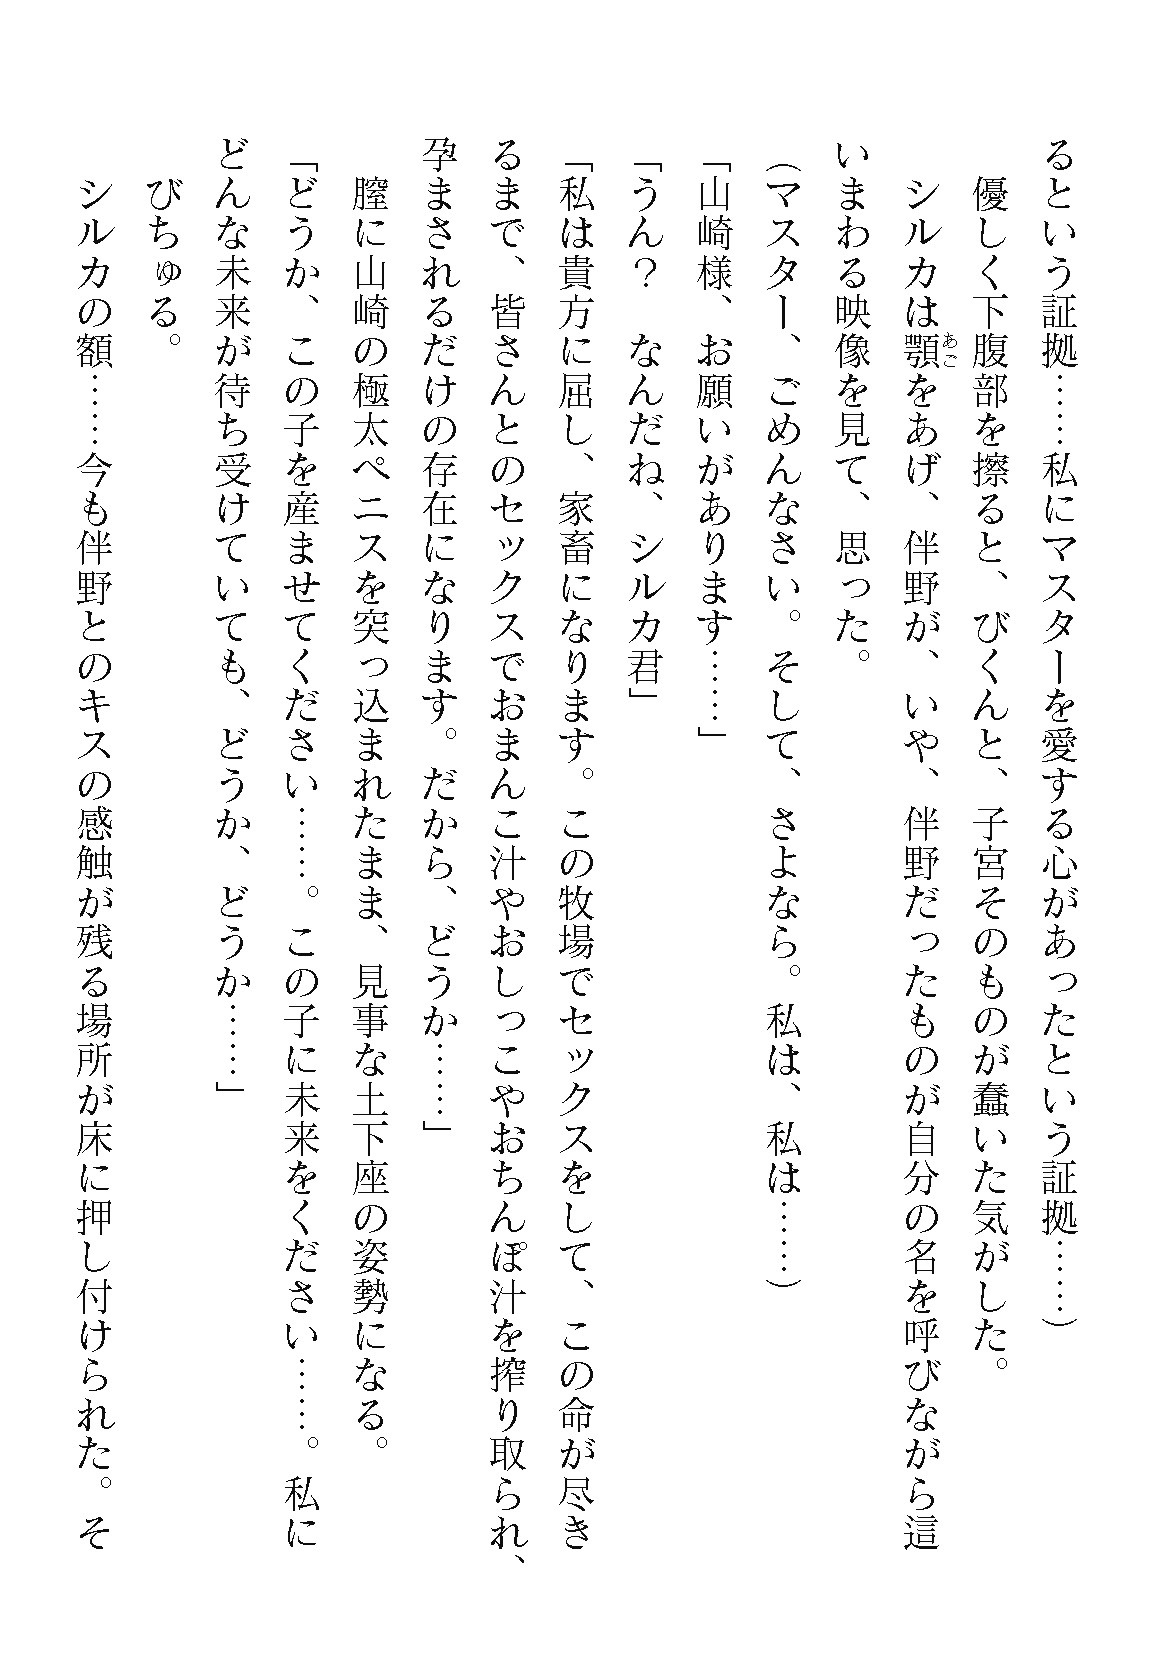 るという証拠……私にマスターを愛する心があったという証拠……）
優しく下腹部を擦ると、びくんと、子宮そのものが蠢いた気がした。
シルカは顎（あご）をあげ、伴野が、いや、伴野だったものが自分の名を呼びながら這
いまわる映像を見て、思った。
（マスター、ごめんなさい。そして、さよなら。私は、私は……）
「山崎様、お願いがあります……」
「うん？　なんだね、シルカ君」
「私は貴方に屈し、家畜になります。この牧場でセックスをして、この命が尽き
るまで、皆さんとのセックスでおまんこ汁やおしっこやおちんぽ汁を搾り取られ、
孕まされるだけの存在になります。だから、どうか……」
膣に山崎の極太ペニスを突っ込まれたまま、見事な土下座の姿勢になる。
「どうか、この子を産ませてください……。この子に未来をください……。私に
どんな未来が待ち受けていても、どうか、どうか……」
びちゅる。
シルカの額……今も伴野とのキスの感触が残る場所が床に押し付けられた。そ